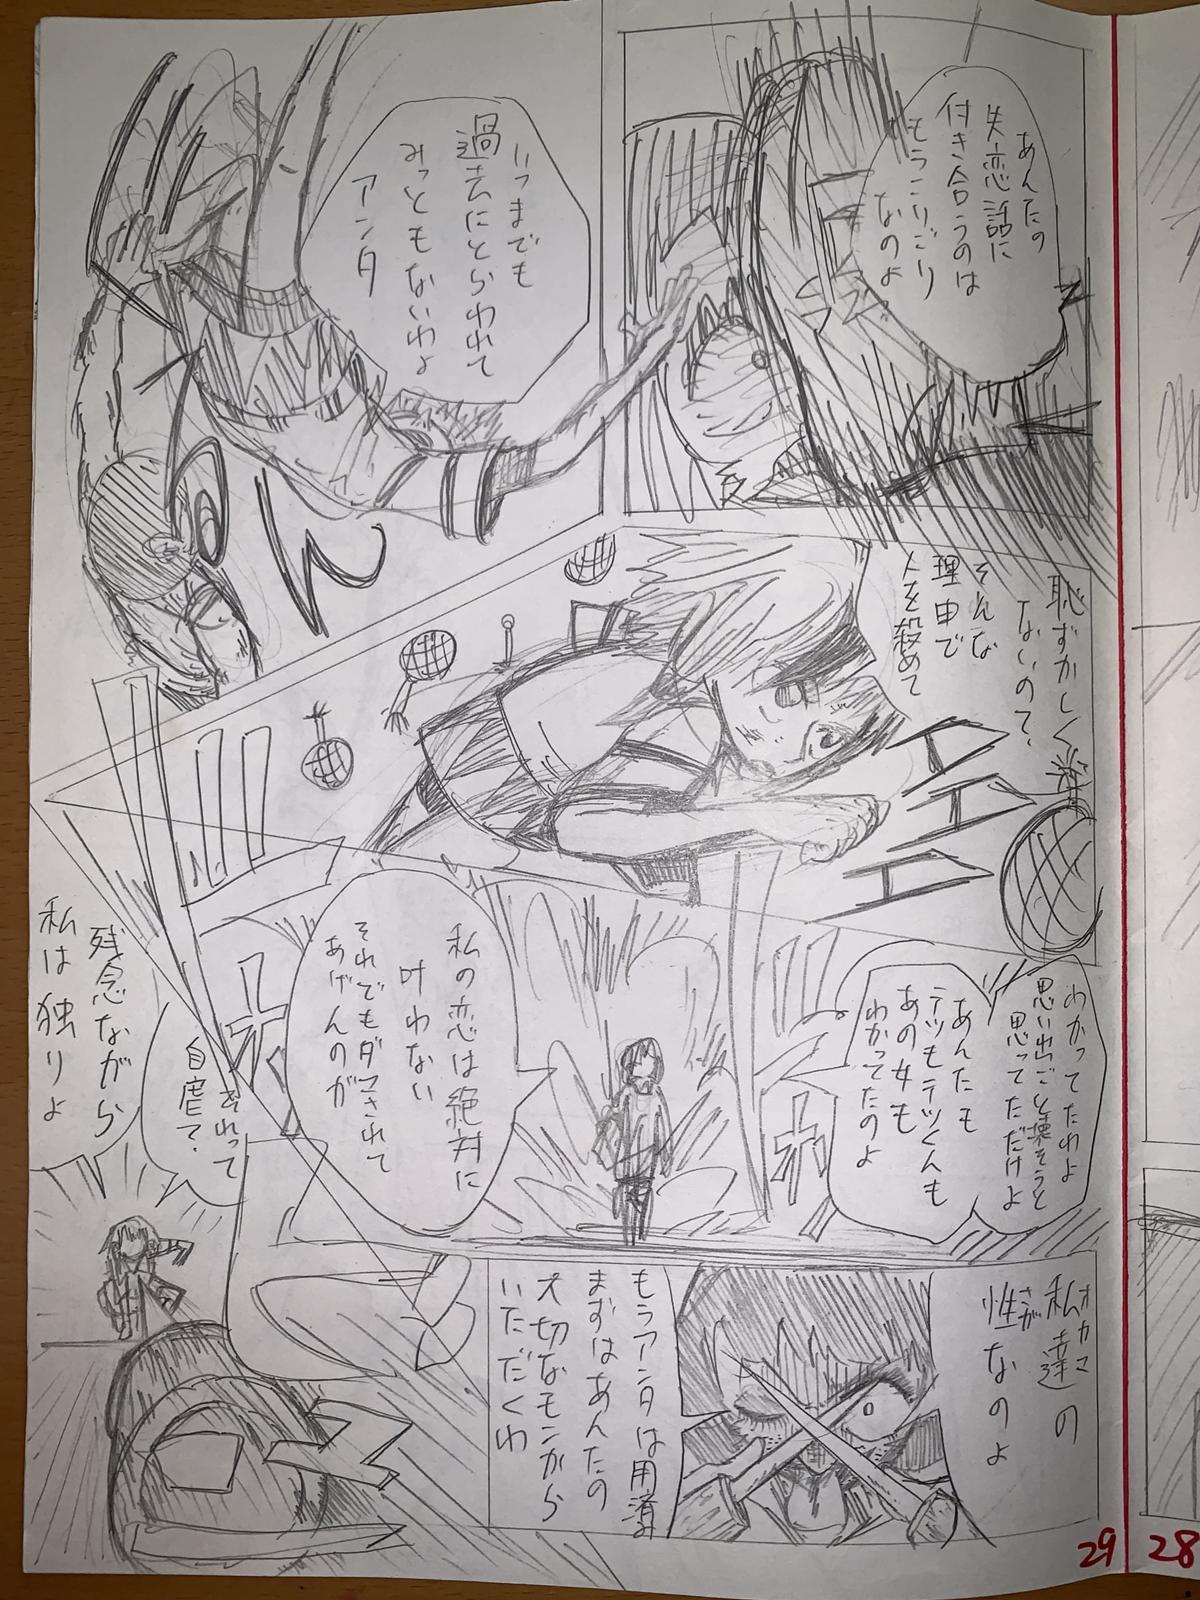 あんたの
失恋話に
付き合うのは
もうこりごり
なのよ
いつまでも
過去にとらわれて
みっともないわよ
アンタ
恥ずかしく
ないの？
そんな
理由で
人を殺めて
わかってたわよ
思い出ごと壊そうと
思ってただけよ
あんたも
テツもテツくんも
あの女も
わかってたのよ
私の恋は絶対に
叶わない
それでもダマされて
あげんのが
オカマ
私達の
さが
性なのよ
もうアンタは用済み
まずはあんたの
大切なモンから
いただくわ
それって
自虐？
残念ながら
私は独りよ
29
28